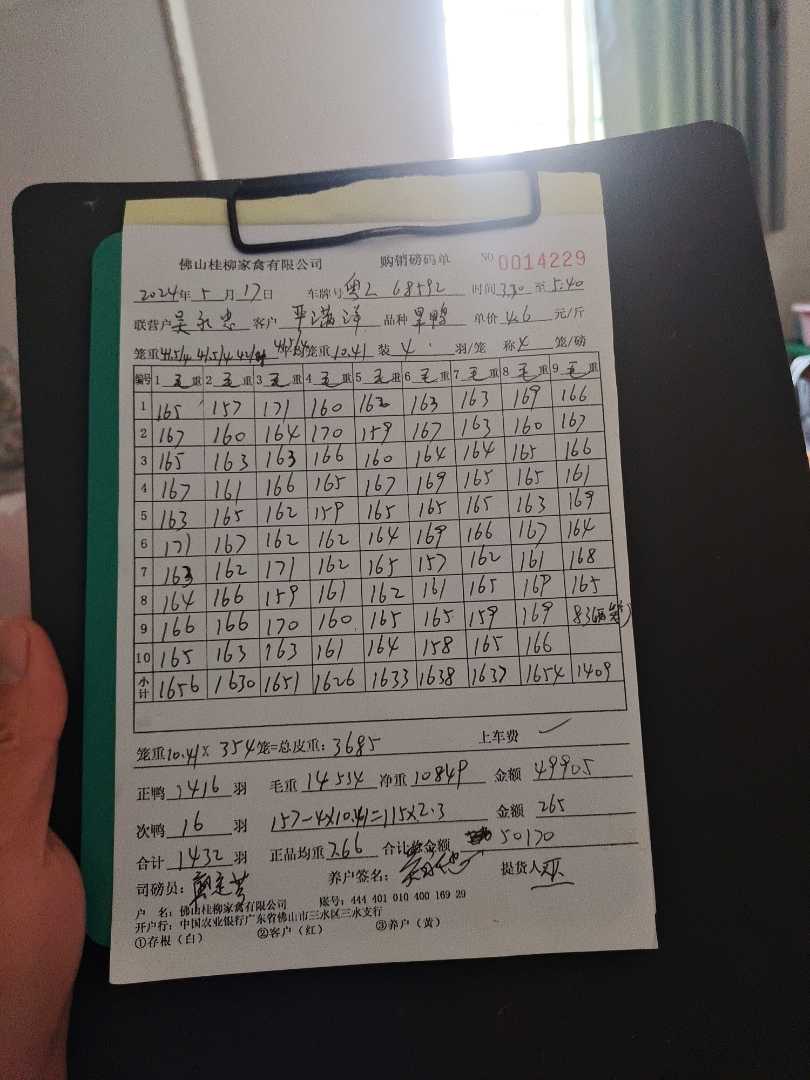 佛山桂柳家禽有限公司 购销磅码单 NO 0014229
2024年5月17日 车牌号 粤Z 68592 时间 3:30 至 5:40
联营户 吴永忠 客户 平满洋 品种 旱鸭 单价 4.6 元/斤
笼重 44.5/4 41.5/4 笼重 10.41 装 4 羽/笼 称 4 笼/磅
编号 1 毛重 2 毛重 3 毛重 4 毛重 5 毛重 6 毛重 7 毛重 8 毛重 9 毛重
1 165 157 171 160 162 163 163 169 166
2 167 160 164 170 159 167 163 160 167
3 165 163 163 166 160 164 164 165 166
4 167 161 166 165 167 169 165 165 161
5 163 165 162 159 165 165 165 163 169
6 171 167 162 162 164 169 166 167 164
7 163 162 171 162 165 157 162 161 168
8 164 166 159 161 162 161 165 169 165
9 166 166 170 160 165 165 159 169 83
10 165 163 163 161 164 158 165 166
小计 1656 1630 1651 1626 1633 1638 1637 1654 1409
笼重 10.41 × 354 笼=总皮重: 3685 上车费
正鸭 1416 羽 毛重 14534 净重 10849 金额 49905
次鸭 16 羽 157-4×10.41=115×2.3 金额 265
合计 1432 羽 正品均重 7.66 合计总金额 50170
司磅员: 养户签名: 提货人:
户 名: 佛山桂柳家禽有限公司 账号: 444 401 010 400 169 29
开户行: 中国农业银行广东省佛山市三水区三水支行
①存根(白) ②客户(红) ③养户(黄)